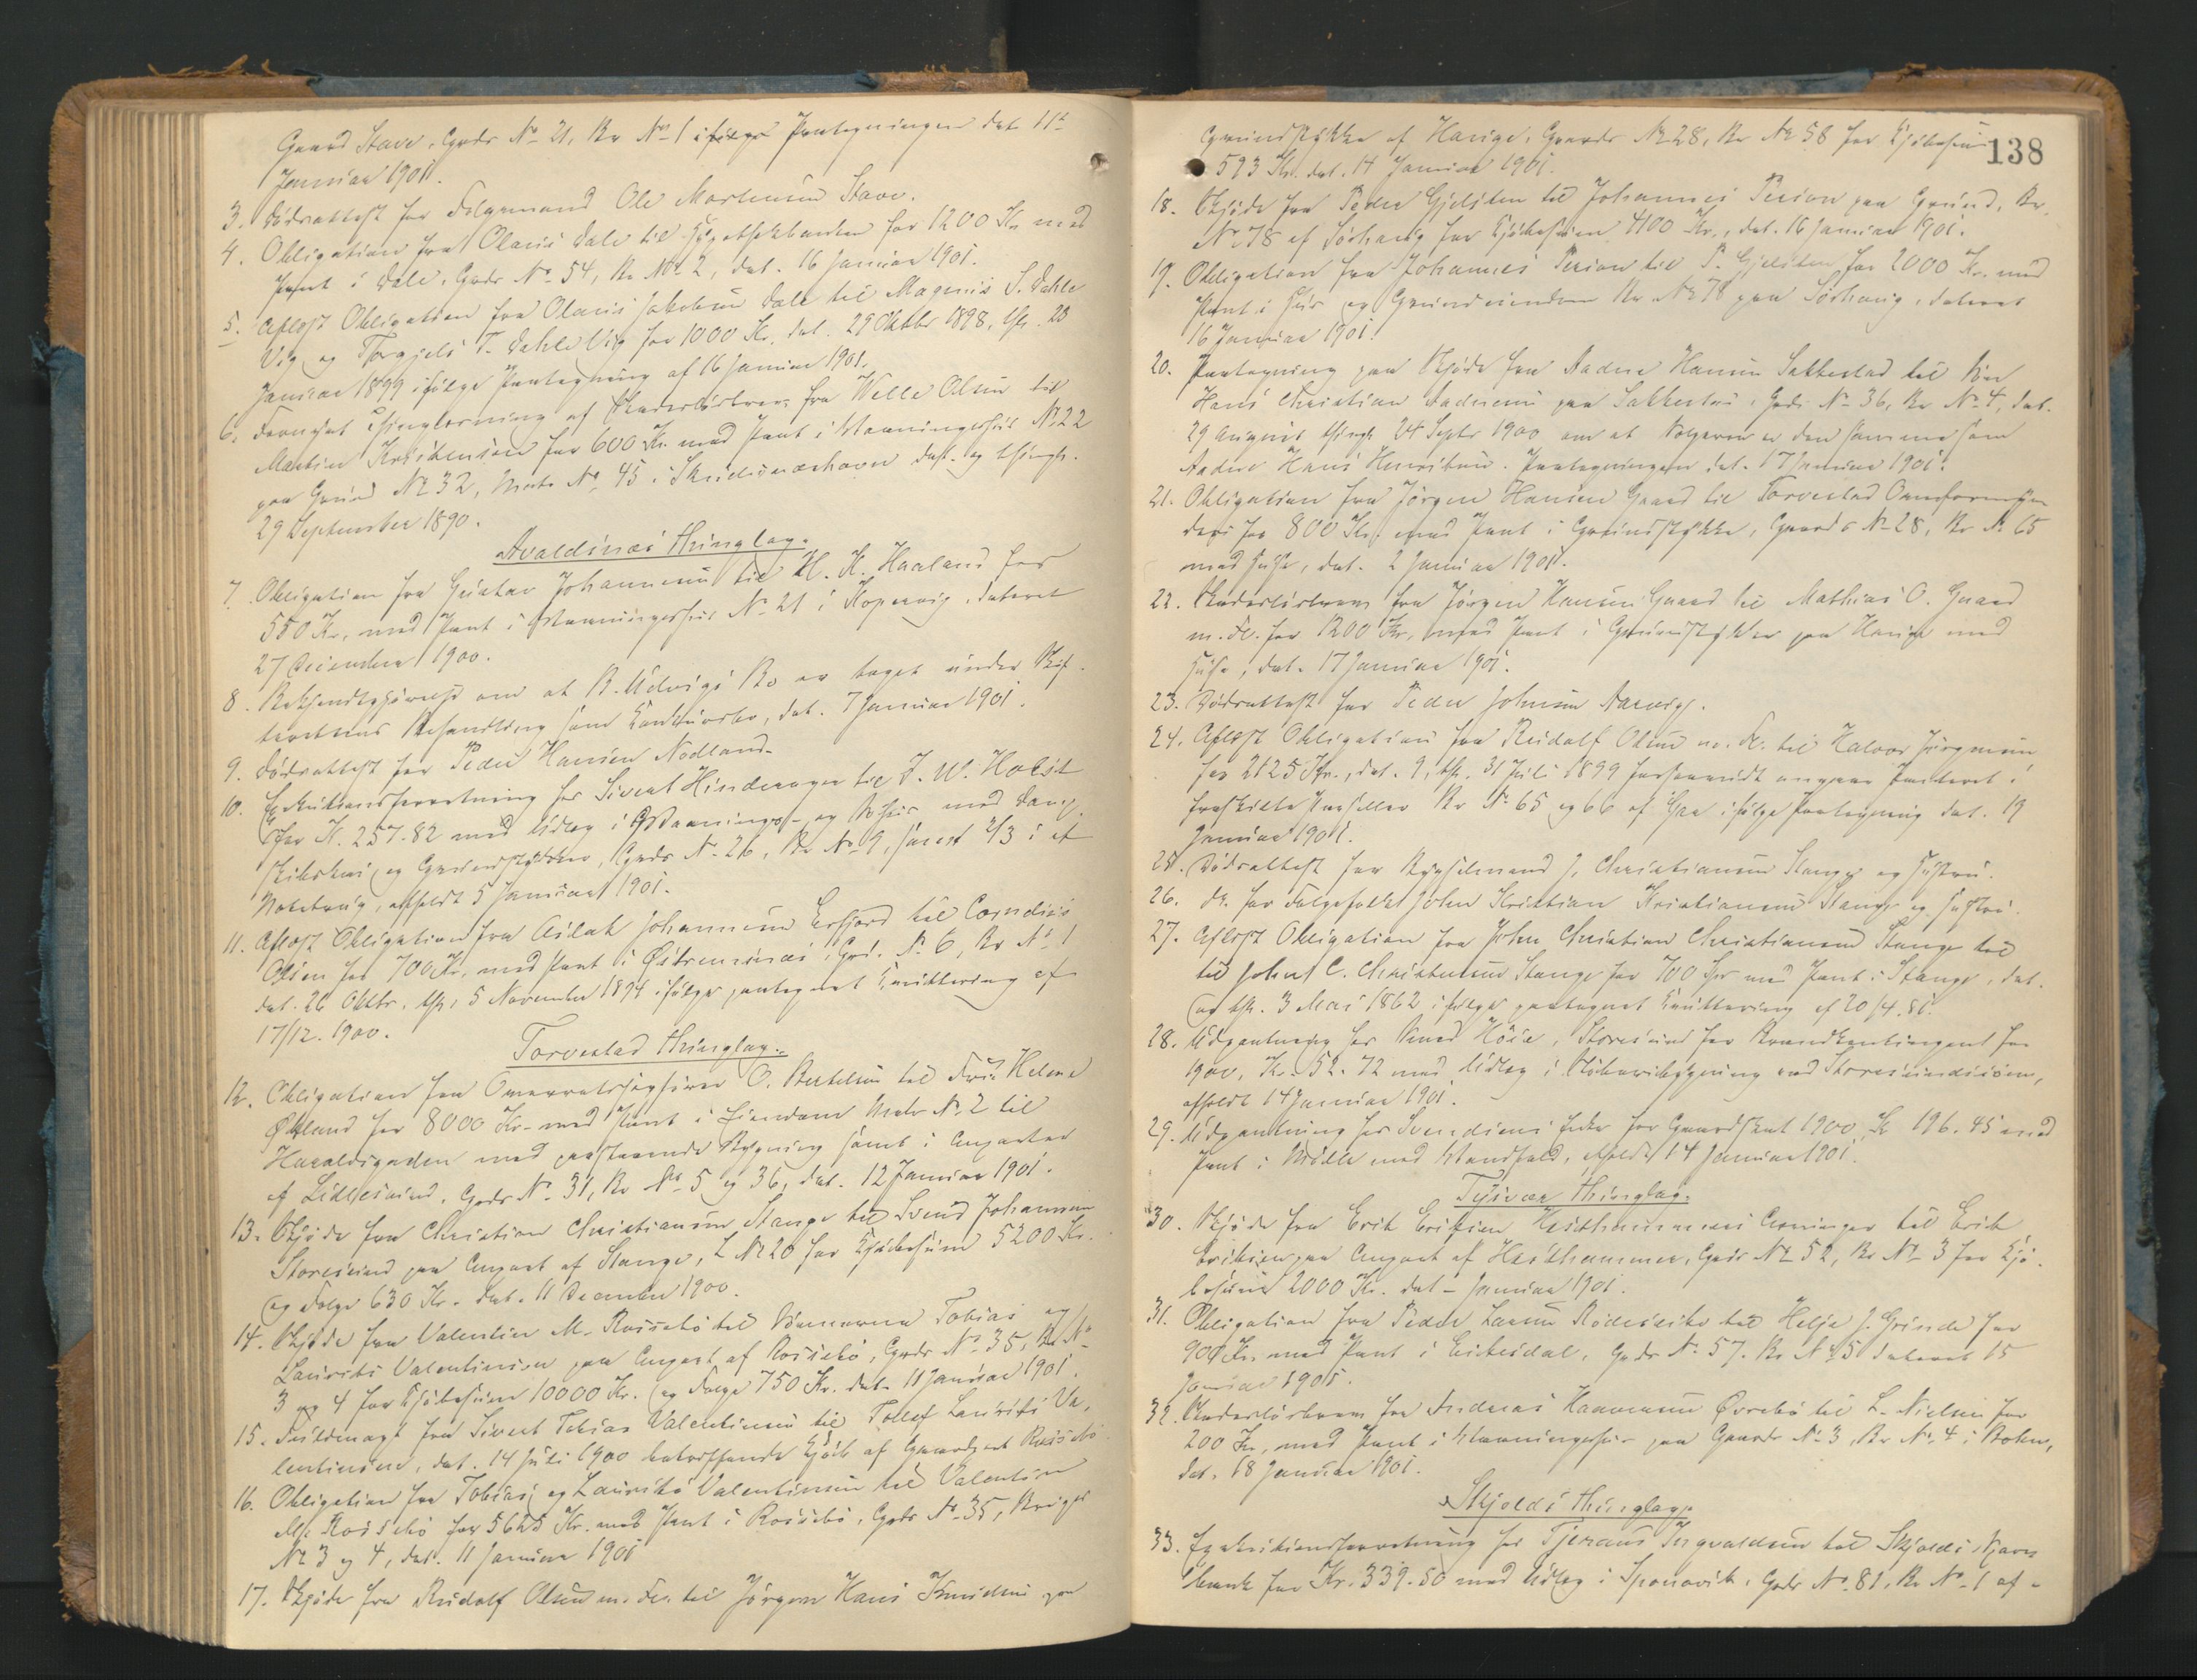 Gaard Stave, Gards No 21, Br No 1 ifølge Paategningen dat 11t
Januar 1901.
3. Dødsattest for Folgemand Ole Mortensen Stave.
4. Obligation fra Olaus Dale til Hypothekbanken for 1200 Kr med
Pant i Dale, Gards No 54, Br No 2, dat. 16 Januar 1901.
5. Aflyst Obligation fra Olaus Jakobsen Dale til Magnus S. Dahle
Vig og Torgjels T. Dahle Vig for 1000 Kr. dat. 29 Oktbr 1898, thl. 23
Januar 1899 ifølge Paategning af 16 Januar 1901.
6. Fornyet Thinglesning af Skadesløsbrev fra Welle Olsen til
Martin Kristensen for 600 Kr. med Pant i Vaaningshus No 22
paa Grund No 32, Matr No 45 i Skudesneshavn dat. og thingl.
29 September 1890.
Avaldsnes Thinglag.
7. Obligation fra Gustav Johannesen til H. H. Haaland for
550 Kr, med Pant i Vaaningshus No 21 i Kopervig, dateret
27 December 1900.
8. Bekjendtgjørelse om at B. Udvigs Bo er taget under Skif-
terettens Behandling som Konkursbo, dat. 7 Januar 1901.
9. Dødsattest for Peder Hansen Nodland.
10. Exekutionsforretning hos Sivert Hinderager til J. W. Holst
for K. 257.82 med Udlæg i Vaanings- og Søhus med Damp-
skibskai og Grundstykker, Gards No 26, Br No 9, samt 2/3 i et
Notebrug, afholdt 5 Januar 1901.
11. Aflyst Obligation fra Aslak Johannesen Erfjord til Cornelius
Olsen for 700 Kr, med Pant i Østremnes, Grd. No 6, Br No 1
dat. 26 Oktbr. thl. 5 November 1894 ifølge paategnet Kvittering af
17/12. 1900.
Torvestad Thinglag.
12. Obligation fra Overretssagfører O. Bertelsen til Fru Helene
Økland for 8000 Kr. med Pant i Eiendom Matr No 2 til
Haraldsgaden med paastaaende Bygning samt i Anparter
af Lillesund, Gards No 31, Br No 5 og 36, dat. 12 Januar 1901.
13. Skjøde fra Christian Christiansen Stange til Svend Johannesen
Storesund paa Anpart af Stange, L No 20 for Kjøbesum 5200 Kr.
og Folge 630 Kr. dat. 11 December 1900.
14. Skjøde fra Valentin M. Rossebø til Sønnerne Tobias og
Laurits Valentinsen paa Anpart af Rossebø, Gards No 35, Br No
3 og 4 for Kjøbesum 10000 Kr. og Folge 750 Kr. dat. 11 Januar 1901.
15. Fuldmagt fra Sivert Tobias Valentinsen til Tollef Laurits Va-
lentinsen, dat. 14 Juli 1900 betræffende Kjøb af Gaardpart Rossebø
16. Obligation fra Tobias og Laurits Valentinsen til Valentin
M. Rossebø for 5625 Kr. med Pant i Rossebø, Gards No 35, Brugs
No 3 og 4, dat. 11 Januar 1901
17. Skjøde fra Rudolf Olsen m. Fl. til Jørgen Hans Knudsen paa
138
Grundstykke af Hauge, Gaards No 28, Br No 58 for Kjøbesum
593 Kr. dat. 14 Januar 1901.
18. Skjøde fra Peder Gjelsten til Johannes Person paa Grund, Br.
No 78 af Sørhaug for Kjøbesum 4100 Kr., dat. 16 Januar 1901.
19. Obligation fra Johannes Person til P. Gjelsten for 2000 Kr. med
Pant i Hus og Grundeiendom Br No 78 paa Sørhaug, dateret
16 Januar 1901.
20. Paategning paa Skjøde fra Aadne Hansen Sakkestad til Søn
Hans Christian Aadnesen paa Sakkestad, Gards No 36, Br No 4, dat.
29 August thingl 24 Septr 1900 om at Sælgeren er den samme som
Aadne Hans Henriksen. Paategningen dat. 17 Januar 1901.
21. Obligation fra Jørgen Hansen Gaard til Torvestad Overformyn-
deri for 800 Kr. med Pant i Grundstykke, Gaards No 28, Br No 65
med Huse, dat. 2 Januar 1901.
22. Skadesløsbrev fra Jørgen Hansen Gaard til Mathias O. Gaard
m. Fl. for 1200 Kr, med Pant i Grundstykker paa Hauge med
Huse, dat. 17 Januar 1901.
23. Dødsattest for Peder Johnsen Aarvig.
24. Aflyst Obligation fra Rudolf Olsen m. Fl. til Halvor Jørgensen
for 2125 Kr., dat. 9, thl. 31 Juli 1899 forsaavidt angaar Panteret i
fraskilte Parceller Br No 65 og 66 af Gaa ifølge Paategning dat. 19
Januar 1901.
25. Dødsattest for Bygselmand J. Christiansen Stange og Hustru.
26. do. for Folgefolk John Kristian Kristiansen Stange og Hustru.
27. Aflyst Obligation fra John Christian Christiansen Stange til
til John C. Christensen Stange for 700 Spd med Pant i Stange, dat.
og thl. 3 Mai 1862 ifølge paategnet Kvittering af 20/4. 81.
28. Udpantning hos Amos Høie, Storesund for Brandkontingent for
1900, Kr. 52.72 med Udlæg i Bygning ved Storesundsøen,
afholdt 14 Januar 1901.
29. Udpantning hos Svendsens Enke for Gaardskat 1900, K 196.45 med
Pant i Mølle med Vandfald, afholdt 14 Januar 1901.
Tysvær Thinglag.
30. Skjøde fra Erik Eriksen Hesthammers Arvinger til Erik
Eriksen paa Anpart af Hesthammer, Gards No 52, Br No 3 for Kjø-
besum 2000 Kr. dat – Januar 1901.
31. Obligation fra Peder Larsen til Helje J. Grinde for
900 Kr. med Pant i Eikesdal, Gards No 57, Br No 5 dateret 15
Januar 1901.
32. Skadesløsbrev fra Andreas Øvrebø til L. Nielsen for
200 Kr, med Pant i Vaaningshus paa Gaards No 3, Br No 4 i Bokn,
dat. 18 Januar 1901.
Skjolds Thinglag
33. Exekutionsforretning hos Tjeraus Ingvaldsen til Skjolds Spare-
bank for Kr. 339.50 med Udlæg i Sponevik, Gards No 81, Br No 1 af-